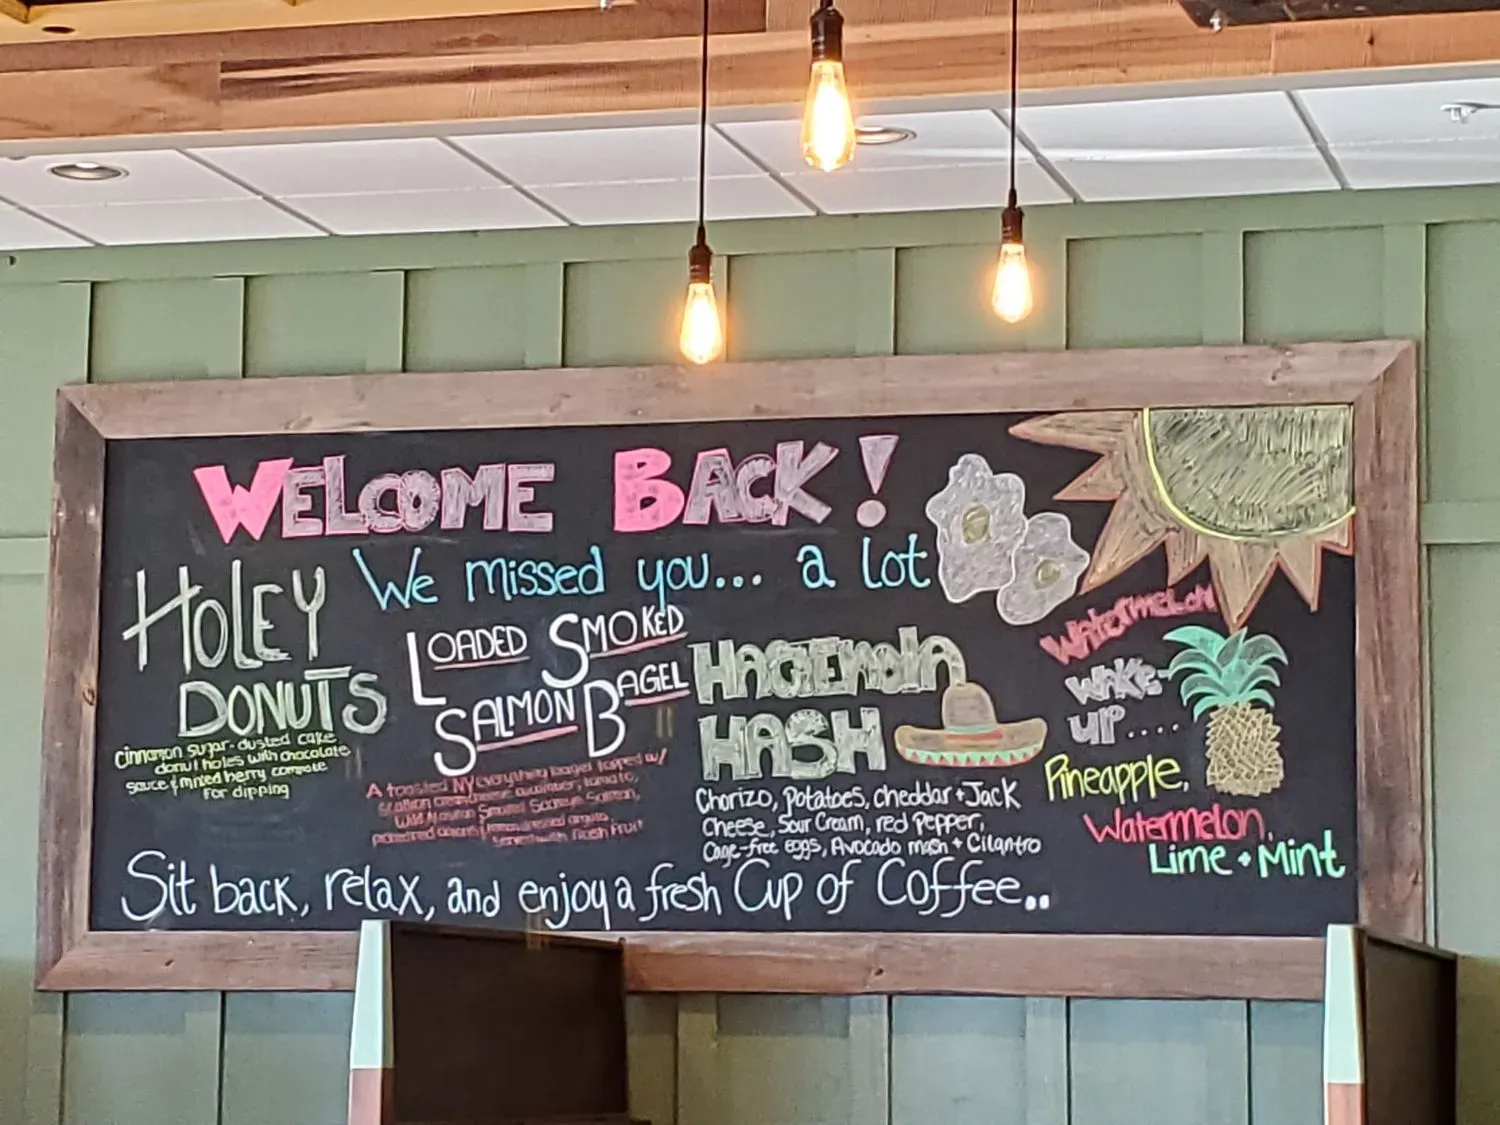 WELCOME BACK!
We missed you... a lot
HOLEY
DONUTS
cinnamon sugar-dusted cake
donut holes with chocolate
sauce & mixed berry compote
for dipping
LOADED SMOKED
SALMON BAGEL
A toasted NY everything bagel topped w/
scallion cream cheese, cucumber, tomato,
Wild Alaskan Smoked Sockeye Salmon,
red onions & lemon dressed arugula.
Served with fresh fruit
HACIENDA
HASH
Chorizo, Potatoes, cheddar + Jack
Cheese, Sour Cream, red Pepper,
Cage-free eggs, Avocado mash + Cilantro
Watermelon
WAKE-
UP....
Pineapple,
Watermelon,
Lime + Mint
Sit back, relax, and enjoy a fresh Cup of Coffee..